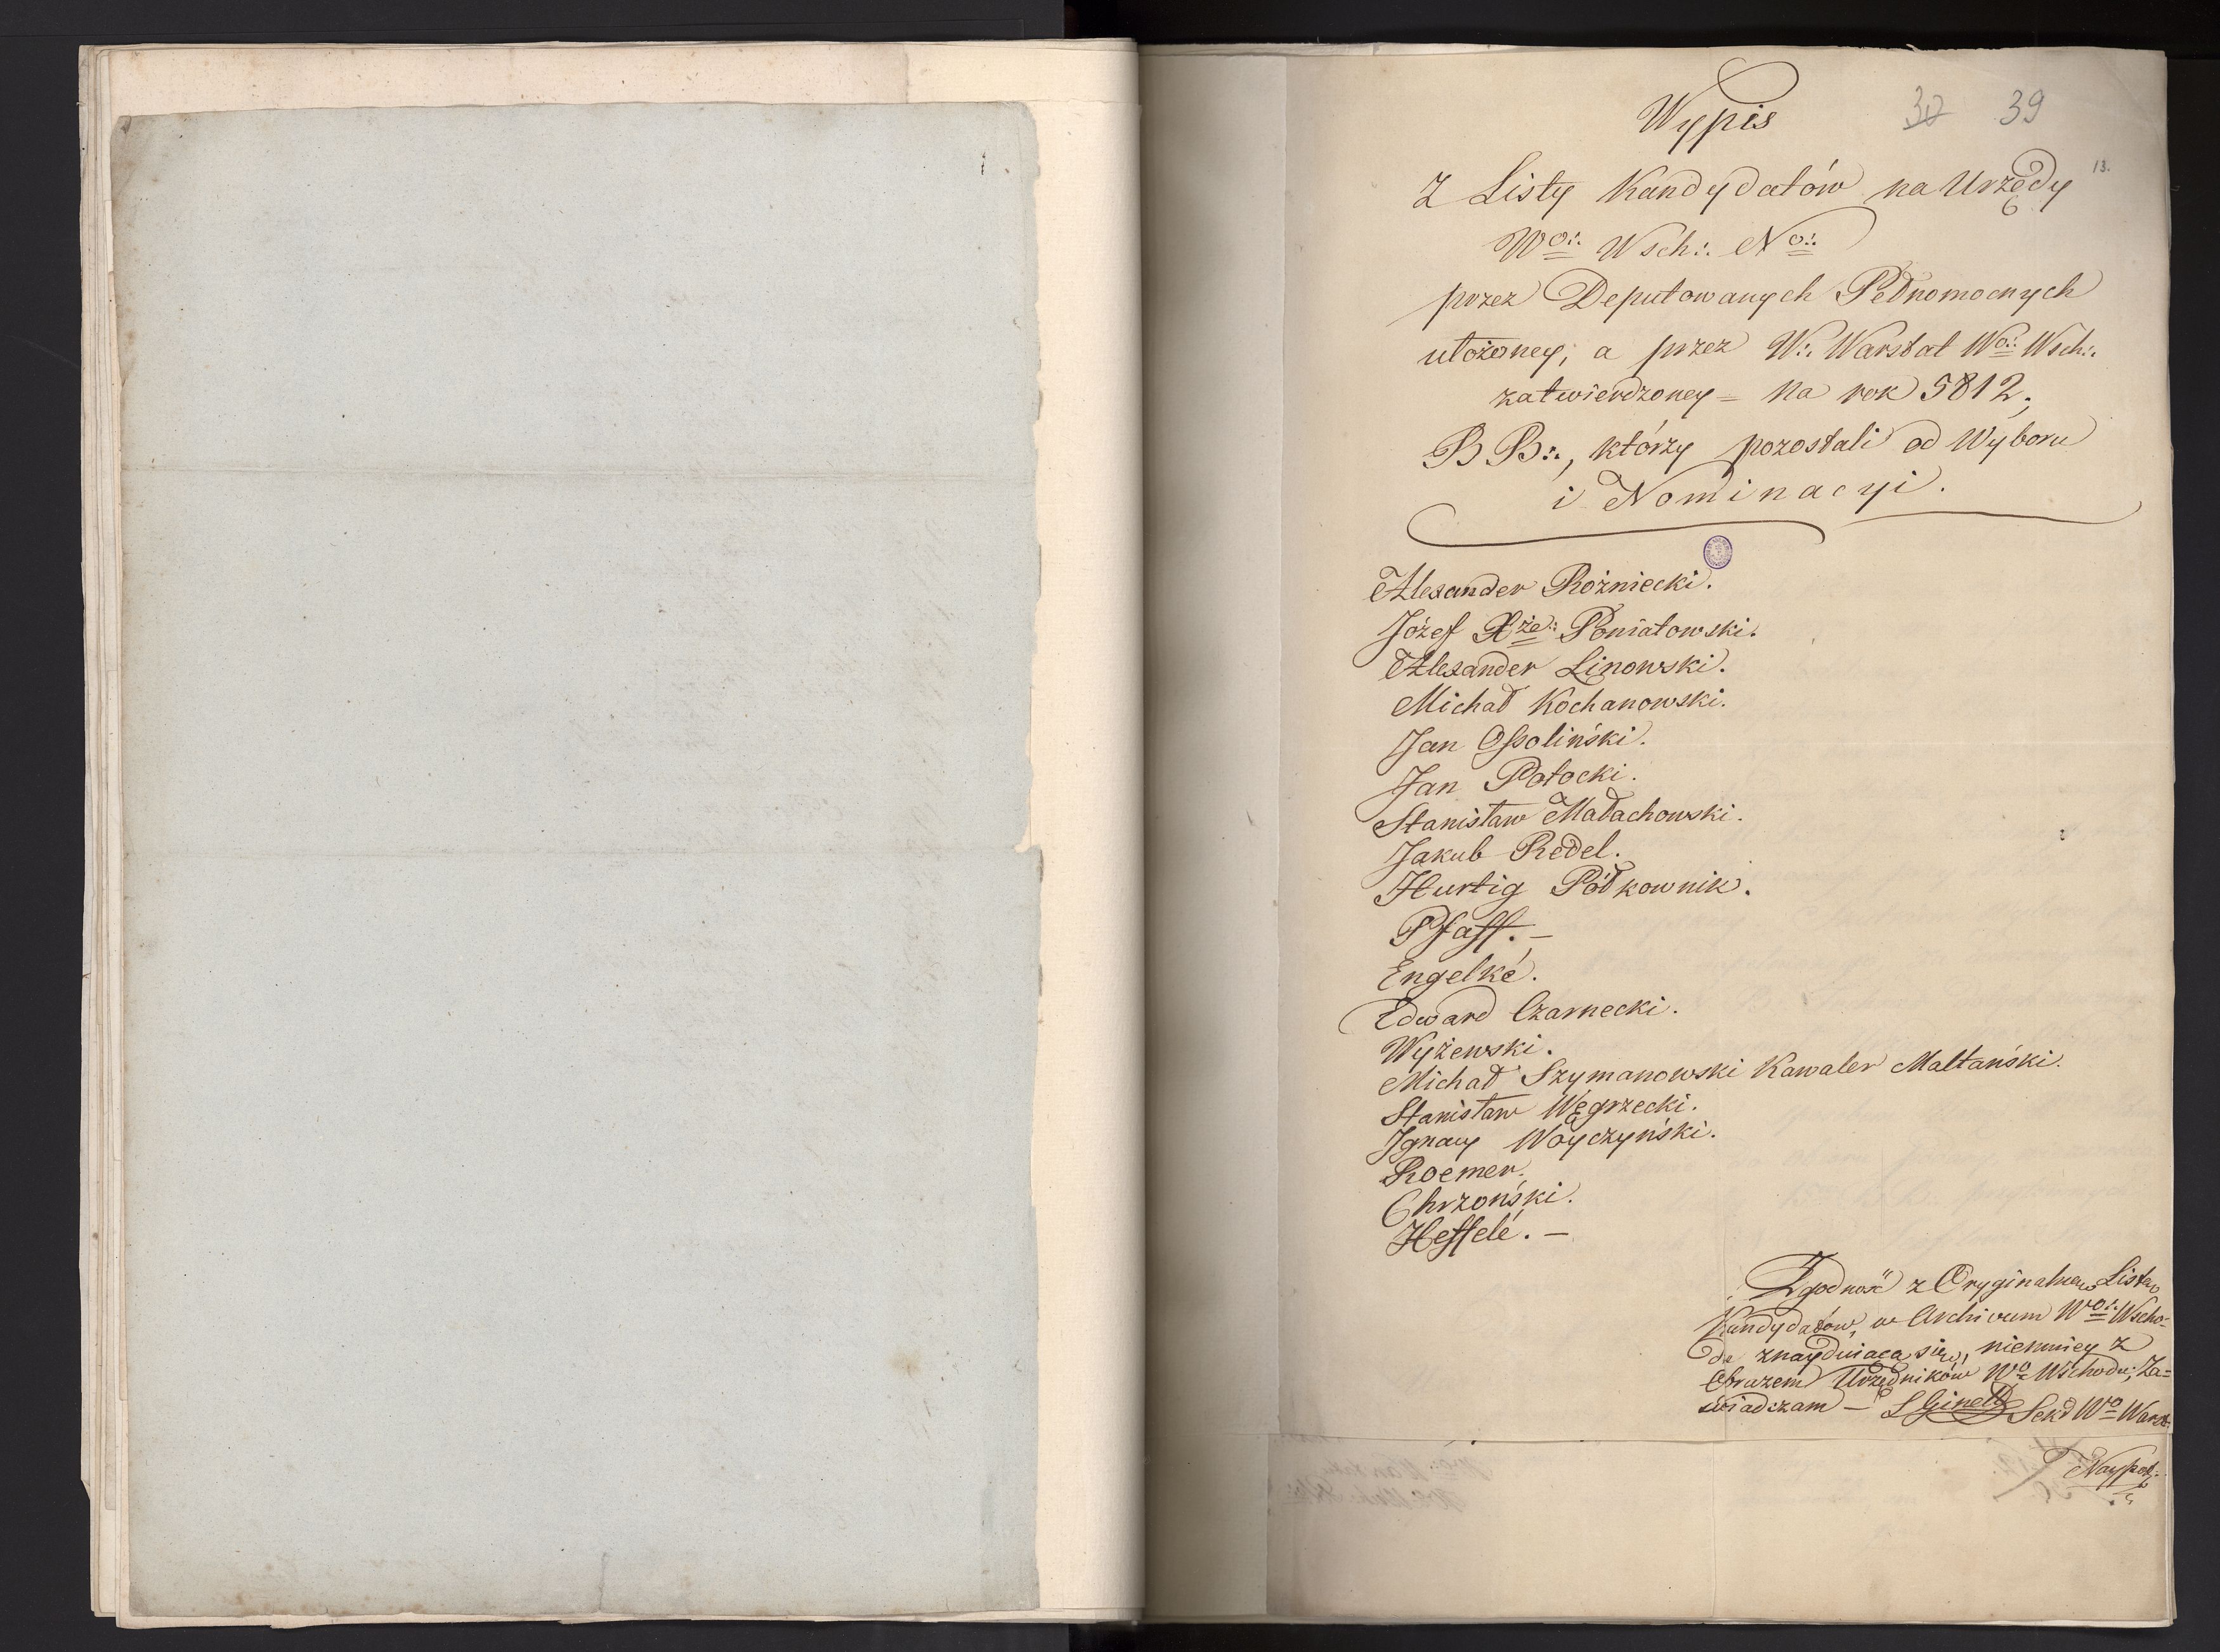 Wypis
39
13.
Z Listy Kandydatów na Urzędy
Wo∴ Wsch∴ No∴
przez Deputowanych Pełnomocnych
ułożoney, a przez W∴ Warstat Wo∴ Wsch∴
zatwierdzoney = na rok 5812,
BB∴, którzy pozostali od Wyboru
i Nominacyi.
Alexander Rożniecki.
Józef Xże: Poniatowski.
Alexander Linowski.
Michał Kochanowski.
Jan Ossoliński.
Jan Potocki.
Stanisław Małachowski.
Jakub Redel.
Hurtig Półkownik.
Pfaff. —
Engelké.
Edward Czarnecki.
Wyżewski.
Michał Szymanowski Kawaler Maltański.
Stanisław Węgrzecki.
Ignacy Woyczyński.
Roemer.
Chrzoński.
Hesselé. —
Zgodność z Oryginalną Listą
Kandydatów, w Archivum Wo∴ Wscho-
du znayduiącą się, niemniey z
Obrazem Urzędników Wo Wschodu; Za=
świadczam — Sekr Wo Warst: